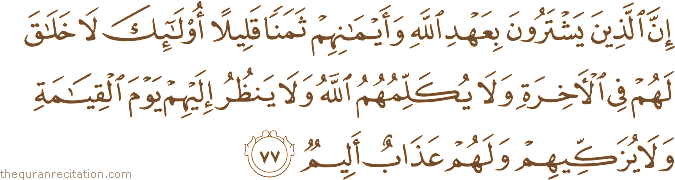 إِنَّ ٱلَّذِينَ يَشْتَرُونَ بِعَهْدِ ٱللَّهِ وَأَيْمَـٰنِهِمْ ثَمَنًا قَلِيلًا أُو۟لَـٰٓئِكَ لَا خَلَـٰقَ
لَهُمْ فِى ٱلْأَخِرَةِ وَلَا يُكَلِّمُهُمُ ٱللَّهُ وَلَا يَنظُرُ إِلَيْهِمْ يَوْمَ ٱلْقِيَـٰمَةِ
وَلَا يُزَكِّيهِمْ وَلَهُمْ عَذَابٌ أَلِيمٌ ٧٧
thequranrecitation.com